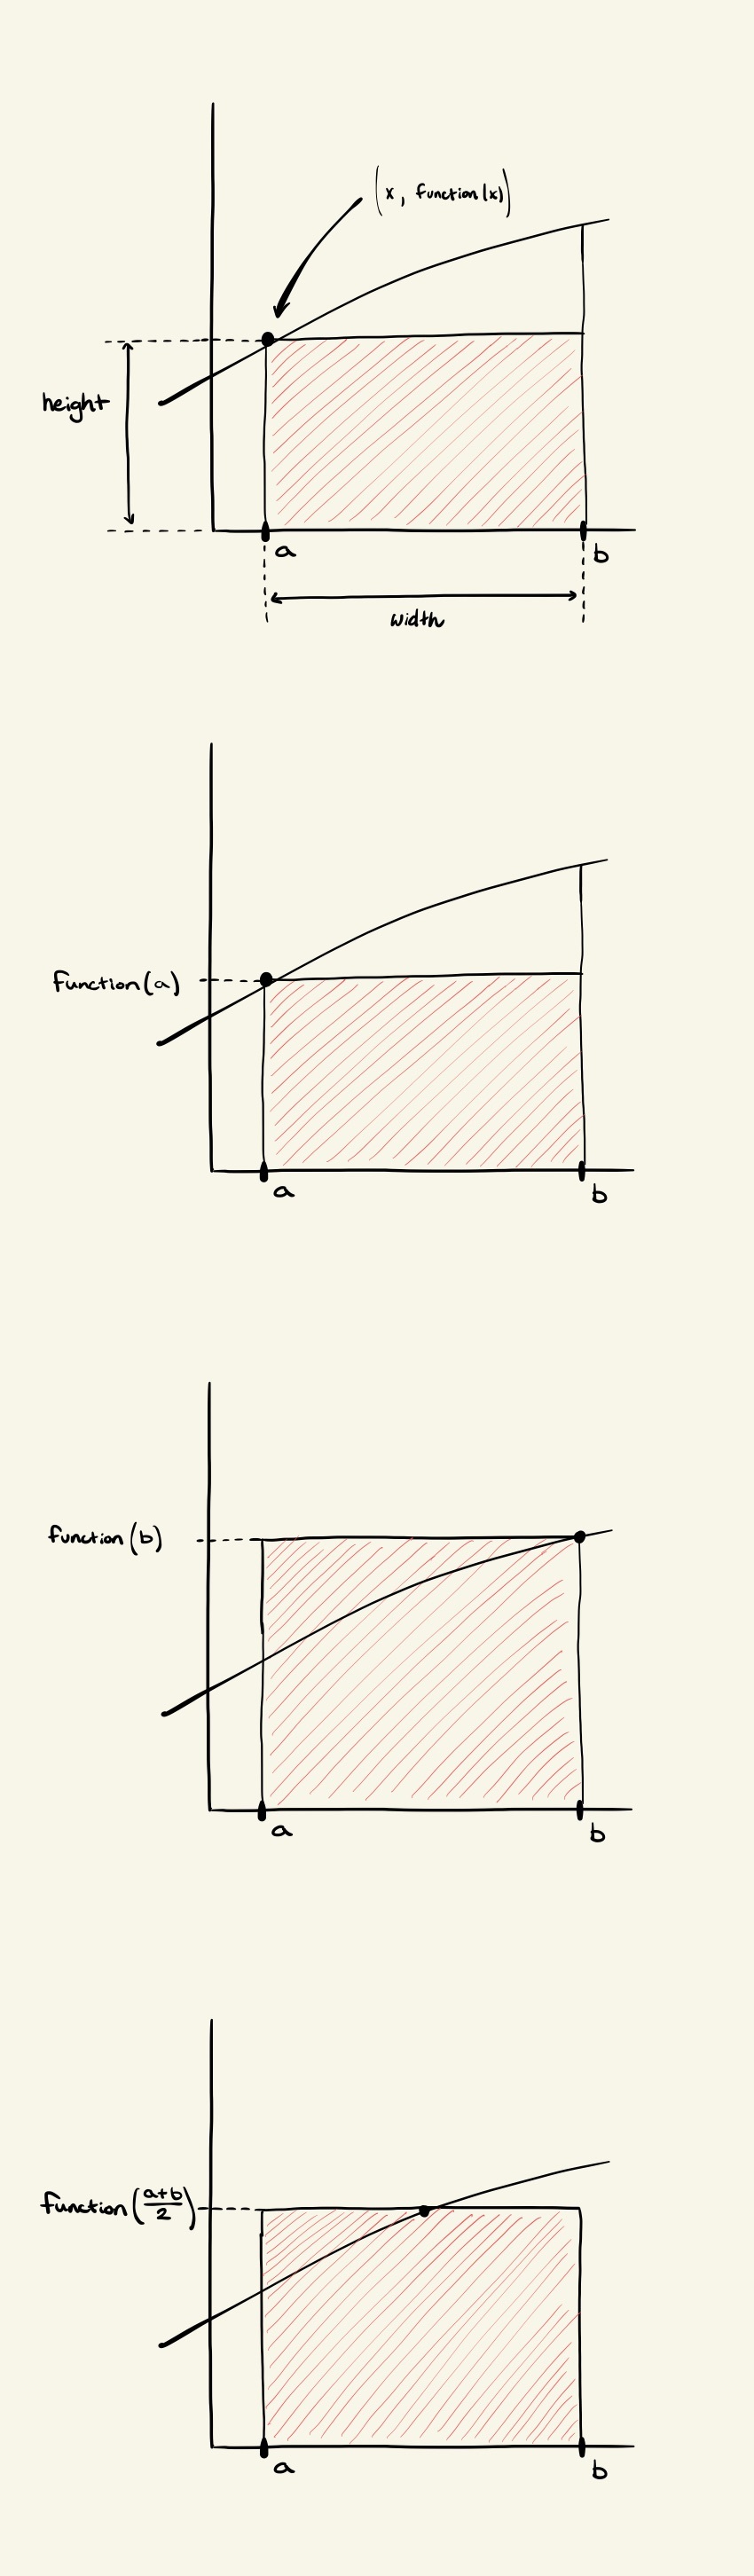 (x, function(x))
height
a
b
width
function(a)
a
b
function(b)
a
b
function(a+b/2)
a
b